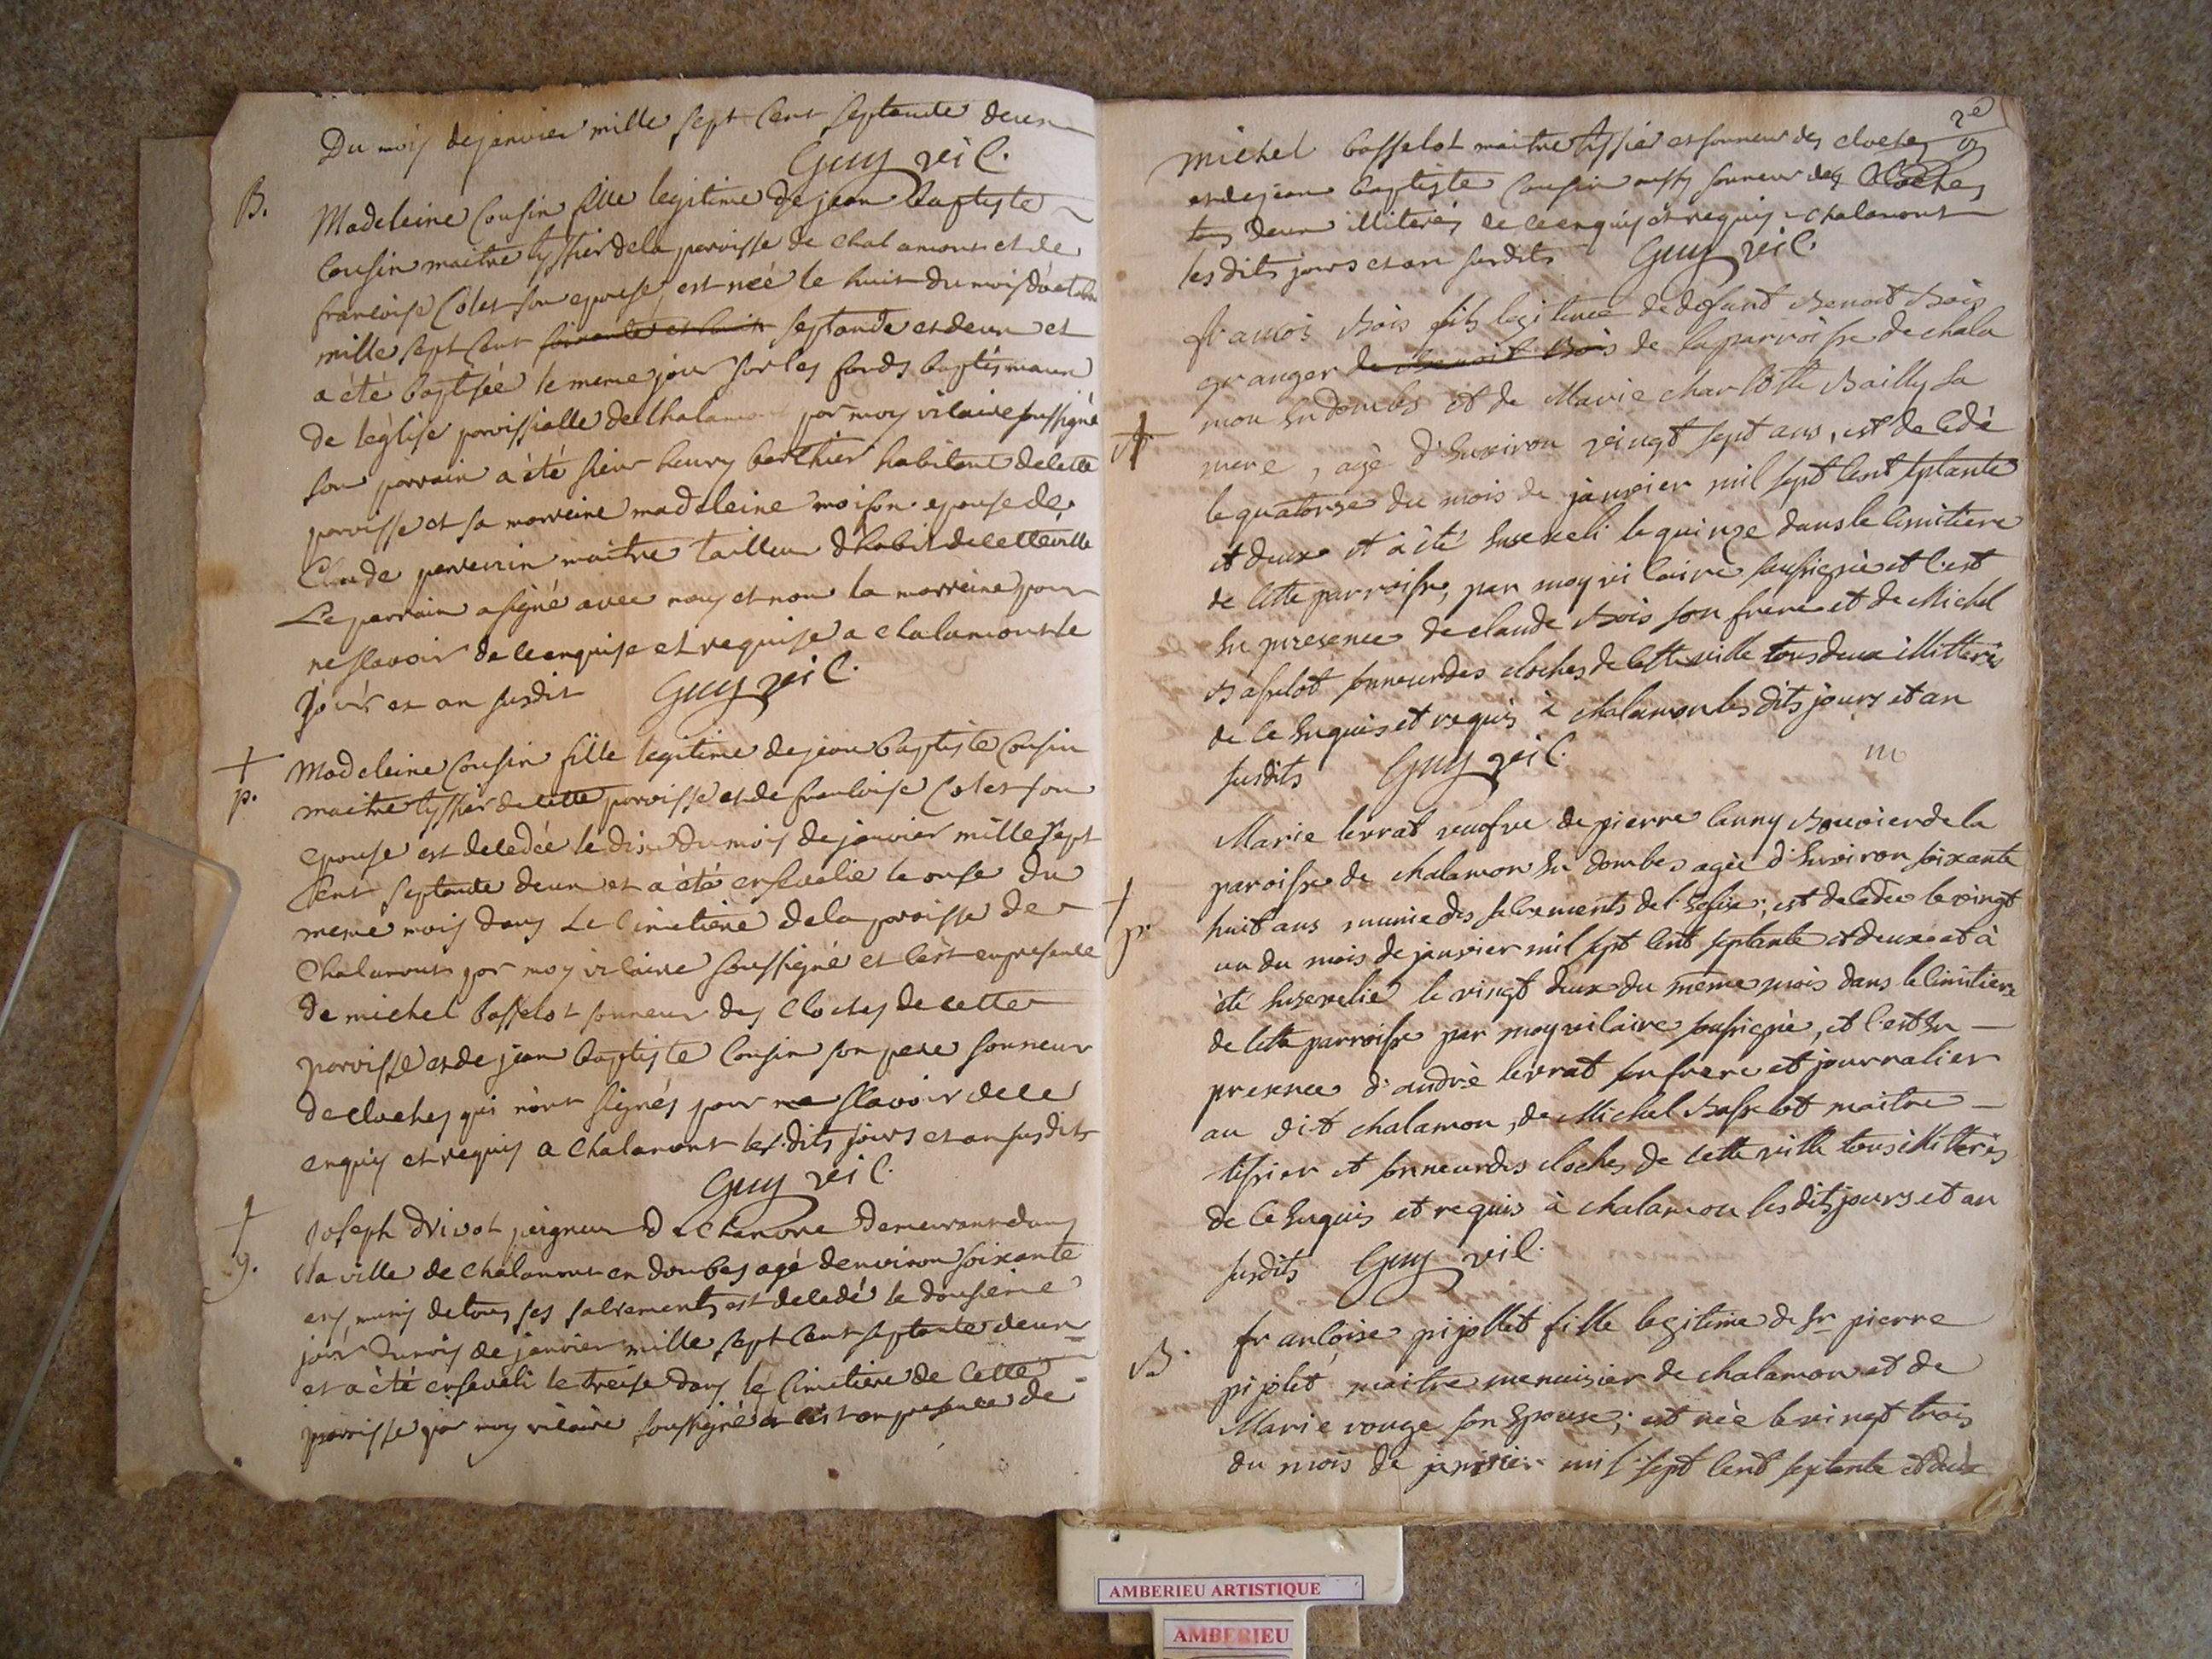 Du mois de janvier mille sept cent septante deux
Guy vic.
B.
Madeleine Cousin fille legitime de jean Baptiste
Cousin maitre tyssier de la paroisse de Chalamont et de
francoise Colet son epouse est neé le huit du mois d'octobre
mille sept cent soixante et huit septante et deux et
a été baptisée le meme jour sur les fonds baptismaux
de léglise paroissialle de Chalamont par moy vicaire soussigné
son parrain a été sieur henry berthier habitant de cette
paroisse et sa marreine madeleine moison epouse de
Claude perreurin maitre tailleur d'habit de cette ville
Le parrain a signé avec nous et non la marreine pour
ne scavoir de ce enquise et requise a Chalamont le
jour et an susdit Guy vic.
+
p.
Madeleine Cousin fille legitime de jean baptiste Cousin
maitre tyssier de cette paroisse et de francoise Colet son
epouse est decedée le dix du mois de janvier mille sept
Cent septante deux et a été ensevelie le onse du
meme mois dans Le Cimetiere de la paroisse de
Chalamont par moy vicaire soussigné et c'est en presence
de michel basselot sonneur des Cloches de cette
paroisse et de jean baptiste Cousin son pere sonneur
de cloches qui n'ont signés pour ne scavoir de ce
enquis et requis a Chalamont les dits jours et an susdits
Guy vic.
+
g.
Joseph drivot peigneur de Chanvre demeurant dans
la ville de Chalamont en dombes agé denviron soixante
ans, munis de tous ses sacrements est decedé le dousieme
jour du mois de janvier mille sept cent septante deux
et a été enseveli le treise dans le Cimetiere de cette
paroisse par moy vicaire soussigné et c'est en presence de
2e
michel basselot maitre tissier et sonneur des cloches
et de jean baptiste cousin aussy sonneur des Cloches
tous deux illiterés de ce enquis et requis a chalamont
les dits jours et an susdits Guy vic.
francois Bois fils legitime de defunt Benoit Bois
granger de Benoit Bois de la parroisse de chala
mon En dombes et de Marie charlotte Bailly sa
mere, agè d'Environ vingt sept ans, est decedè
le quatorse du mois de janvier mil sept cent septante
et deux et à été Ensevéli le quinze dans le cimitiere
de cette parroisse, par moy vicaire soussignè et c'est
En presence de claude Bois son frere et de Michel
Basselot sonneur des cloches de cette ville tous deux illitterés
de ce Enquis et requis à chalamon les dits jours et an
susdits Guy vic.
+
p.
Marie levrat veufve de pierre lanny Bouvier de la
paroisse de chalamon En dombes agèe d'Environ soixante
huit ans munie des sacrements de l'Eglise; est decedèe le vingt
un du mois de janvier mil sept cent septante et deux et à
été Ensevelie le vingt deux du même mois dans le cimitiere
de cette parroisse par moy vicaire soussignè, et c'est En
presence d'andrè levrat son frere et journalier
au dit chalamon, de Michel Basselot maitre
tissier et sonneur des cloches de cette ville tous illitterés
de ce Enquis et requis à chalamon les dits jours et an
susdits Guy vic.
B.
francoise pijollet fille legitime de sr pierre
pijolet maitre menuisier de chalamon et de
Marie rouge son Epouse; est nèe le vingt trois
du mois de janvier mil sept cent septente et deux
AMBERIEU ARTISTIQUE
AMBERIEU